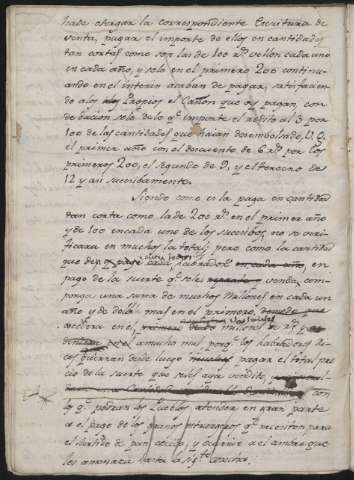 hade otorgar la correspondiente Escritura de
venta, pagar el importe de ellos en cantidades
tan cortas como son las de 100 r.s vellon cada uno
en cada año, y solo en el primero 200 continu-
ando en el interin acaban de pagar, satisfacien-
do a los Propios el Cañon que oy pagan, con
deducion solo de lo q.e importe el redito al 3 por
100 de las cantidades que haian desembolsado, V.G.
el primer año con el descuento de 6 r.s por los
primeros 200, el segundo de 9, y el tercero de
12 y asi sucesibamente.
Siendo como es la paga en cantidad
tan corta como la de 200 r.s en el primer año
y de 100 en cada uno de los sucesibos, no se veri-
ficara en muchos la total; pero como la cantidad
que labradores en cada año, en
pago de la suerte q.e se les venda, com-
ponga una suma de muchos millones en cada un
año y de dobla mas en el primero,
millones de r.s
a mucho mas porq.e los labradores Ri-
cos querran desde luego pagar el total pre-
cio de la suerte que se les aya vendido,
con
lo q.e podran los Pueblos atender en gran parte
a el pago de los granos q.e necesiten para
el surtido de pan y ocurrir a el ambre que
les amenaza hasta la